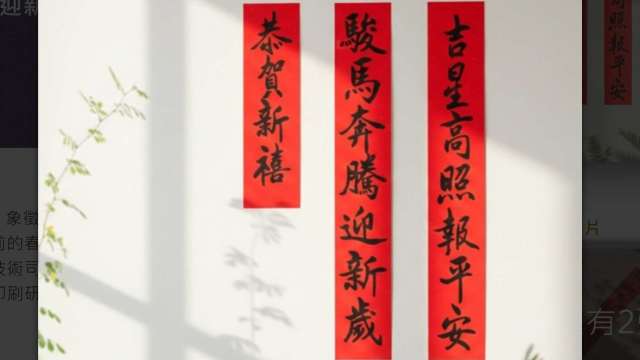 迎新
恭賀新禧
駿馬奔騰迎新歲
吉星高照報平安
照報平安
象徵
前的春
技術司
印刷研
片
有2